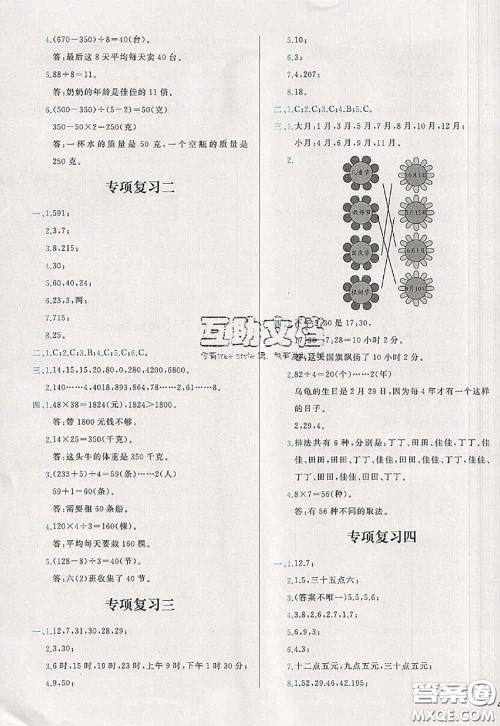 4.(670-350)÷8=40(台)。
答:最后这8天平均每天卖40台。
5.88÷8=11。
答:奶奶的年龄是佳佳的11倍。
6.(500-350)÷(5-2)=50(克)
350-50×2=250(克)
答:一杯水的质量是50克,一个空瓶的质量是
250克。
专项复习二
一、1.591;
2.3,7;
3.8,215;
4.30;
5.10,52;
6.23,23,两;
7.715;
8.25。
二、1.C;2.C;3.B;4.C;5.C;6.C。
三、1.14,15,12,20,80,0,280,4200,6800。
2.140……4,4018,893,864,78……2,640。
四、1.48×38=1824(元),1824>1800。
答:带1800元钱不够。
2.14×25=350(千克)。
答:这头牛的体重是350千克。
3.(233+5)÷4=59(条)……2(人)
59+1=60(条)。
答:需要租60条船。
4.120×4÷3=160(棵)。
答:平均每天要栽160棵。
5.(128-8)÷3=40(节)。
答:六(2)班收集了40节。
专项复习三
一、1.12,7,31,30,28,29;
2.3,30;
3.6时,15时,19时,23时,上午9时,下午1时30分;
4.9,50;
5.10;
6.3;
7.4,207;
8.18。
二、1.C;2.C;3.C;4.B;5.C。
三、1.大月:1月,3月,5月,7月,8月,10月,12月;
小月:4月,6月,9月,11月。
2.
儿童节
10月1日
教师节
3月12日
国庆节
6月1日
植树节
9月10日
互助文档
四、1.下午5,30是17:30,
17:30-7:28=10小时2分。
答:这天国旗飘扬了10小时2分。
2.82÷4=20(个)……2(年)
乌龟的生日是2月29日,因为每4年才有一个这样
的日子。
2,29,4。
3.排法共有6种,分别是:丁丁、田田、佳佳,丁丁、佳
佳、田田,田田、丁丁、佳佳,田田、佳佳、丁丁,佳佳、
丁丁、田田,佳佳、田田、丁丁。
4.8×7=56(种)。
答:有56种不同的取法。
专项复习四
一、1.12.7;
2.1,3.5,三十五点六;
3.(答案不唯一)5,4,3,2;
4.8,5;
5.3,8;
6.3;
7.十二点五元,九点五元,三十点五元;
8.1.52,50.56,40,42.195;
答案圈
MXQE.COM